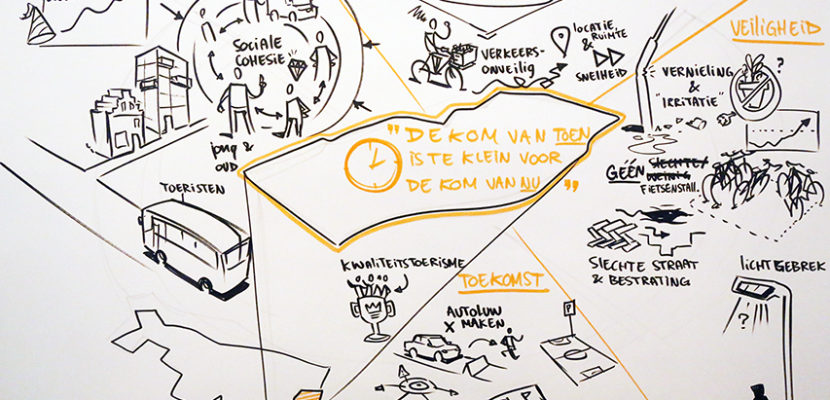 SOCIALE
COHESIE
jong &
OUD
TOERISTEN
VERKEERS-
ONVEILIG
LOCATIE
RUIMTE
&
SNELHEID
VEILIGHEID
VERNIELING
&
"IRRITATIE"
?
GÉÉN SLECHTE/
WEINIG
FIETSENSTALL.
SLECHTE STRAAT
& BESTRATING
LICHTGEBREK
?
" DE KOM VAN TOEN
IS TE KLEIN VOOR
DE KOM VAN NU "
KWALITEITSTOERISME
TOEKOMST
AUTOLUW
X MAKEN
P
P